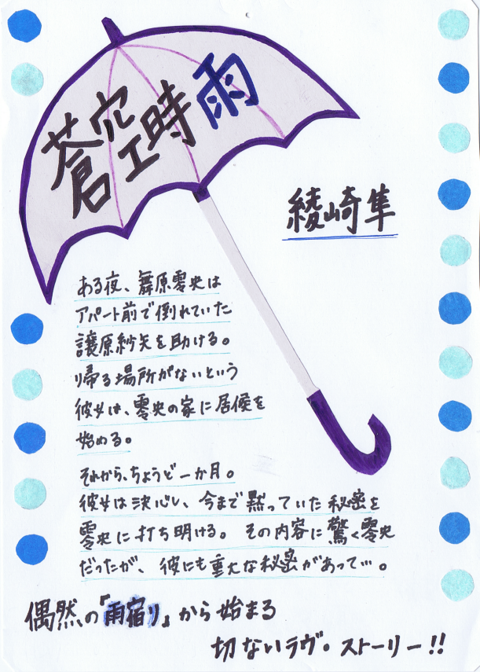 蒼空時雨
綾崎隼
ある夜、舞原零央は
アパート前で倒れていた
譲原紗矢を助ける。
帰る場所がないという
彼女は、零央の家に居候を
始める。
それから、ちょうど一か月。
彼女は決心し、今まで黙っていた秘密を
零央に打ち明ける。その内容に驚く零央
だったが、彼にも重大な秘密があって…。
偶然の『雨宿り』から始まる
切ないラヴ・ストーリー!!